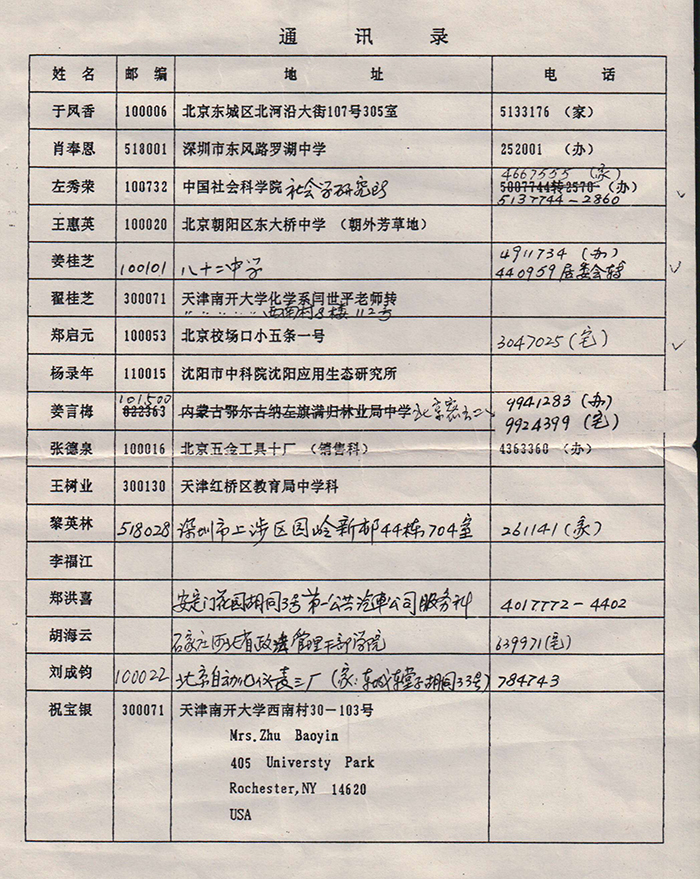 通 讯 录
姓 名 邮 编 地 址 电 话
于风香 100006 北京东城区北河沿大街107号305室 5133176 (家)
肖奉恩 518001 深圳市东风路罗湖中学 252001 (办)
4667555 (家)
左秀荣 100732 中国社会科学院 社会学研究所 5007744转2570 (办)
5137744-2860
王惠英 100020 北京朝阳区东大桥中学 (朝外芳草地)
4911734 (办)
姜桂芝 100101 八十二中学 440959居委会转
翟桂芝 300071 天津南开大学化学系闫世平老师转
〃 〃 〃 〃 〃 西南村8楼112号
郑启元 100053 北京校场口小五条一号 3047025 (宅)
杨录年 110015 沈阳市中科院沈阳应用生态研究所
101500 9941283 (办)
姜言梅 022363 内蒙古鄂尔古纳左旗满归林业局中学 北京密云二 9924399 (宅)
张德泉 100016 北京五金工具十厂 (销售科) 4363360 (办)
王树业 300130 天津红桥区教育局中学科
黎英林 518028 深圳市上涉区园岭新邨44栋704室 261141 (家)
李福江
郑洪喜 安定门花园胡同3号第一公共汽車公司服务科 4017772-4402
胡海云 石家庄河北省政法管理干部学院 639971(宅)
刘成钧 100022 北京自动化仪表三厂 (家:东城东堂子胡同33号) 784743
祝宝银 300071 天津南开大学西南村30-103号
Mrs.Zhu Baoyin
405 Universty Park
Rochester,NY 14620
USA